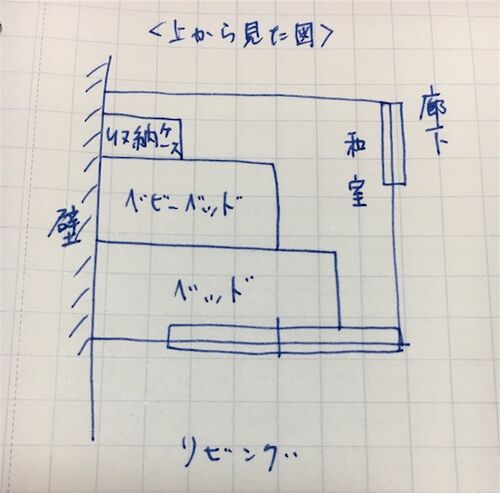 <上から見た図>
廊下
収納ケース
和室
ベビーベッド
壁
ベッド
リビング